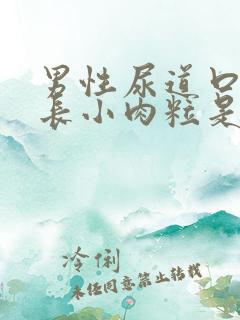 男性尿道口
长小肉粒是
冷俐
未经同意禁止转载